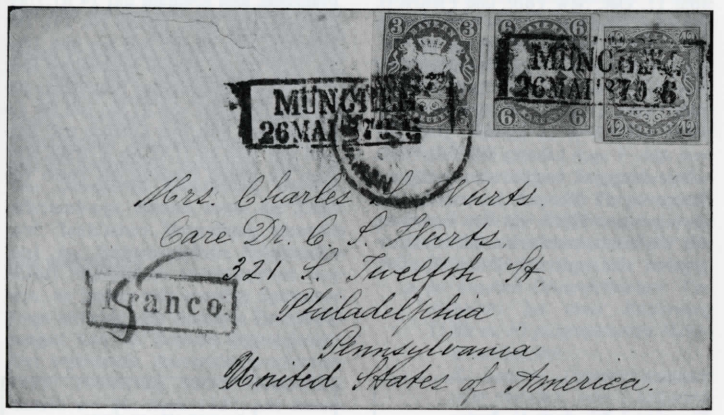 3 3 6 6 12
BAYERN
MÜNCHEN.
26 MAI 870 6
MÜNCHEN.
26 MAI
6 6 12 12
Mrs. Charles S. Wurts.
Care Dr. C. S. Wurts.
321 S. Twelfth St.
Franco.
Philadelphia
Pennsylvania
United States of America.